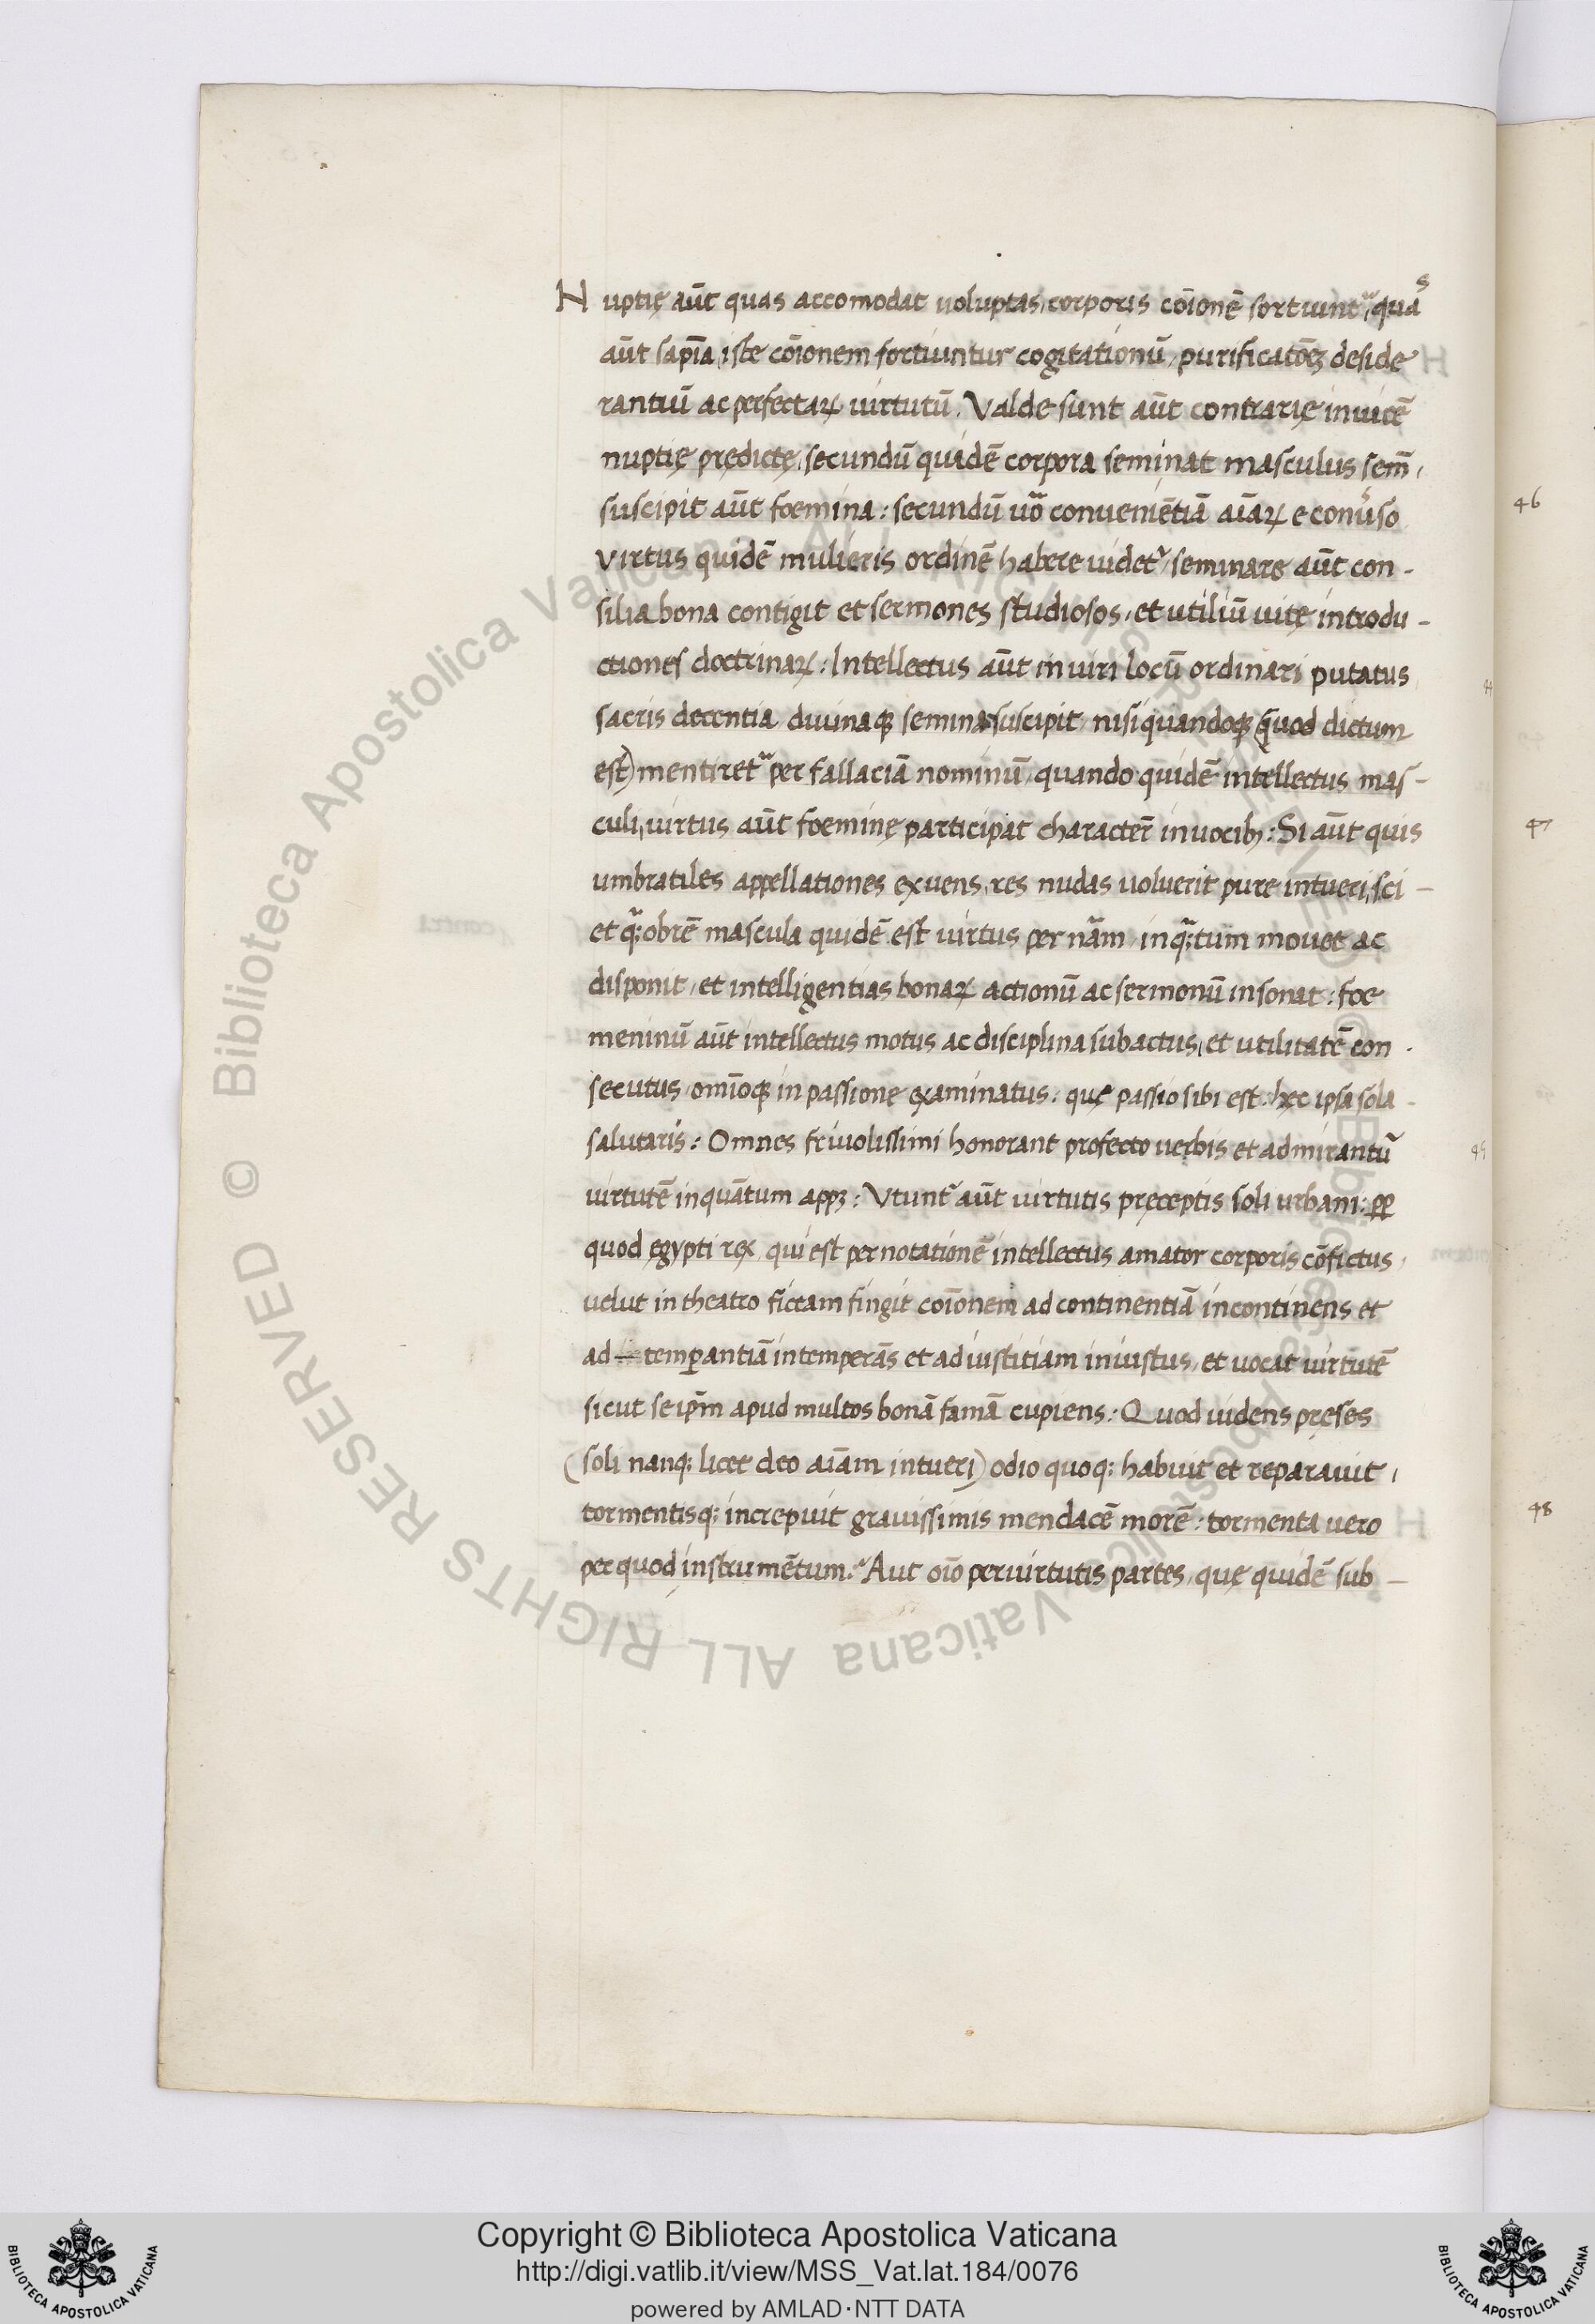 Nuptię aūt quas accomodat uoluptas, corporis cōionē sortiunt᷑, quas
aūt sapīa, iste cōionem sortiuntur cogitationū, purificatōēꝫ deside
rantiū ac perfectaꝝ uirtutū. Valde sunt aūt contrarię inuicē
nuptię prędictę, secundū quidē corpora seminat masculus sem̄,
suscipit aūt foemina: secundū uo᷑ conueniētiā aīaꝝ e conuso
virtus quidē mulieris ordinē habere uidet᷑, seminare aūt con-
silia bona contigit et sermones studiosos, et utiliū uitę introdu-
ctiones doctrinaꝝ: Intellectus aūt in uiri locū ordinari putatus
sacris decentia diuinaqꝫ semina suscipit, nisi quandoqꝫ (quod dictum
est) mentiret᷑ per fallaciā nominū, quando quidē intellectus mas-
culi, uirtus aūt foeminę participat character̄ in uocibꝫ: Si aūt quis
umbratiles appellationes exuens, res nudas uoluerit pure intueri, sci-
et q᷑: obrē mascula quidē est uirtus per nām, inq᷑:tum mouet ac
disponit, et intelligentias bonaꝝ actionū ac sermonū insonat: foe
meninū aūt intellectus motus ac disciplina subactus, et utilitatē con-
secutus, omīoqꝫ in passione examinatus: quę passio sibi est: hęc ipsa sola-
salutaris: Omnes friuolissimi honorant profecto uerbis et admirantū
uirtutē inquātum appꝫ: Utunt᷑ aūt uirtutis pręceptis soli urbani: ꝓp
quod egypti rex, qui est per notationē intellectus amator corporis cōfictus,
uelut in theatro fictam fingit coīonem ad continentiā incontinens et
ad — temꝑantiā intemperās et ad iustitiam iniustus, et uocat uirtutē
sicut se ip̄m apud multos bonā famā cupiens: Quod uidens pręses
(soli nanq: licet deo aīam intueri) odio quoq: habuit et reparauit,
tormentisq: increpuit grauissimis mendacē morē: tormenta uero
per quod instrumētum? Aut oīo per uirtutis partes, quę quidē sub-
46
44
47
45
48
Copyright © Biblioteca Apostolica Vaticana
http://digi.vatlib.it/view/MSS_Vat.lat.184/0076
powered by AMLAD·NTT DATA
BIBLIOTECA APOSTOLICA VATICANA
BIBLIOTECA APOSTOLICA VATICANA
© Biblioteca Apostolica Vaticana ALL RIGHTS RESERVED